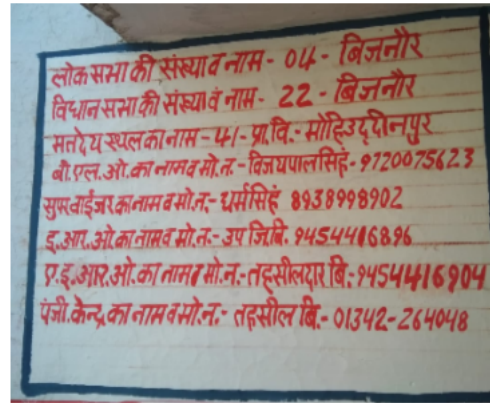 लोक सभा की संख्या व नाम - 04 - बिजनौर
विधान सभा की संख्या व नाम - 22 - बिजनौर
मतदेय स्थल का नाम - 41 - प्रा.वि.- मोहिउद्दीनपुर
बी.एल.ओ.का नाम व मो.न.- विजयपाल सिंह - 9720075623
सुपरवाईजर का नाम व मो.न.- धर्म सिंह 8938998902
इ.आर.ओ.का नाम व मो.न.- उप जि.बि. 9454416896
ए.इ.आर.ओ.का नाम व मो.न.- तहसीलदार बि.: 9454416904
पंजी.केन्द्र का नाम व मो.न.- तहसील बि.- 01342-264048